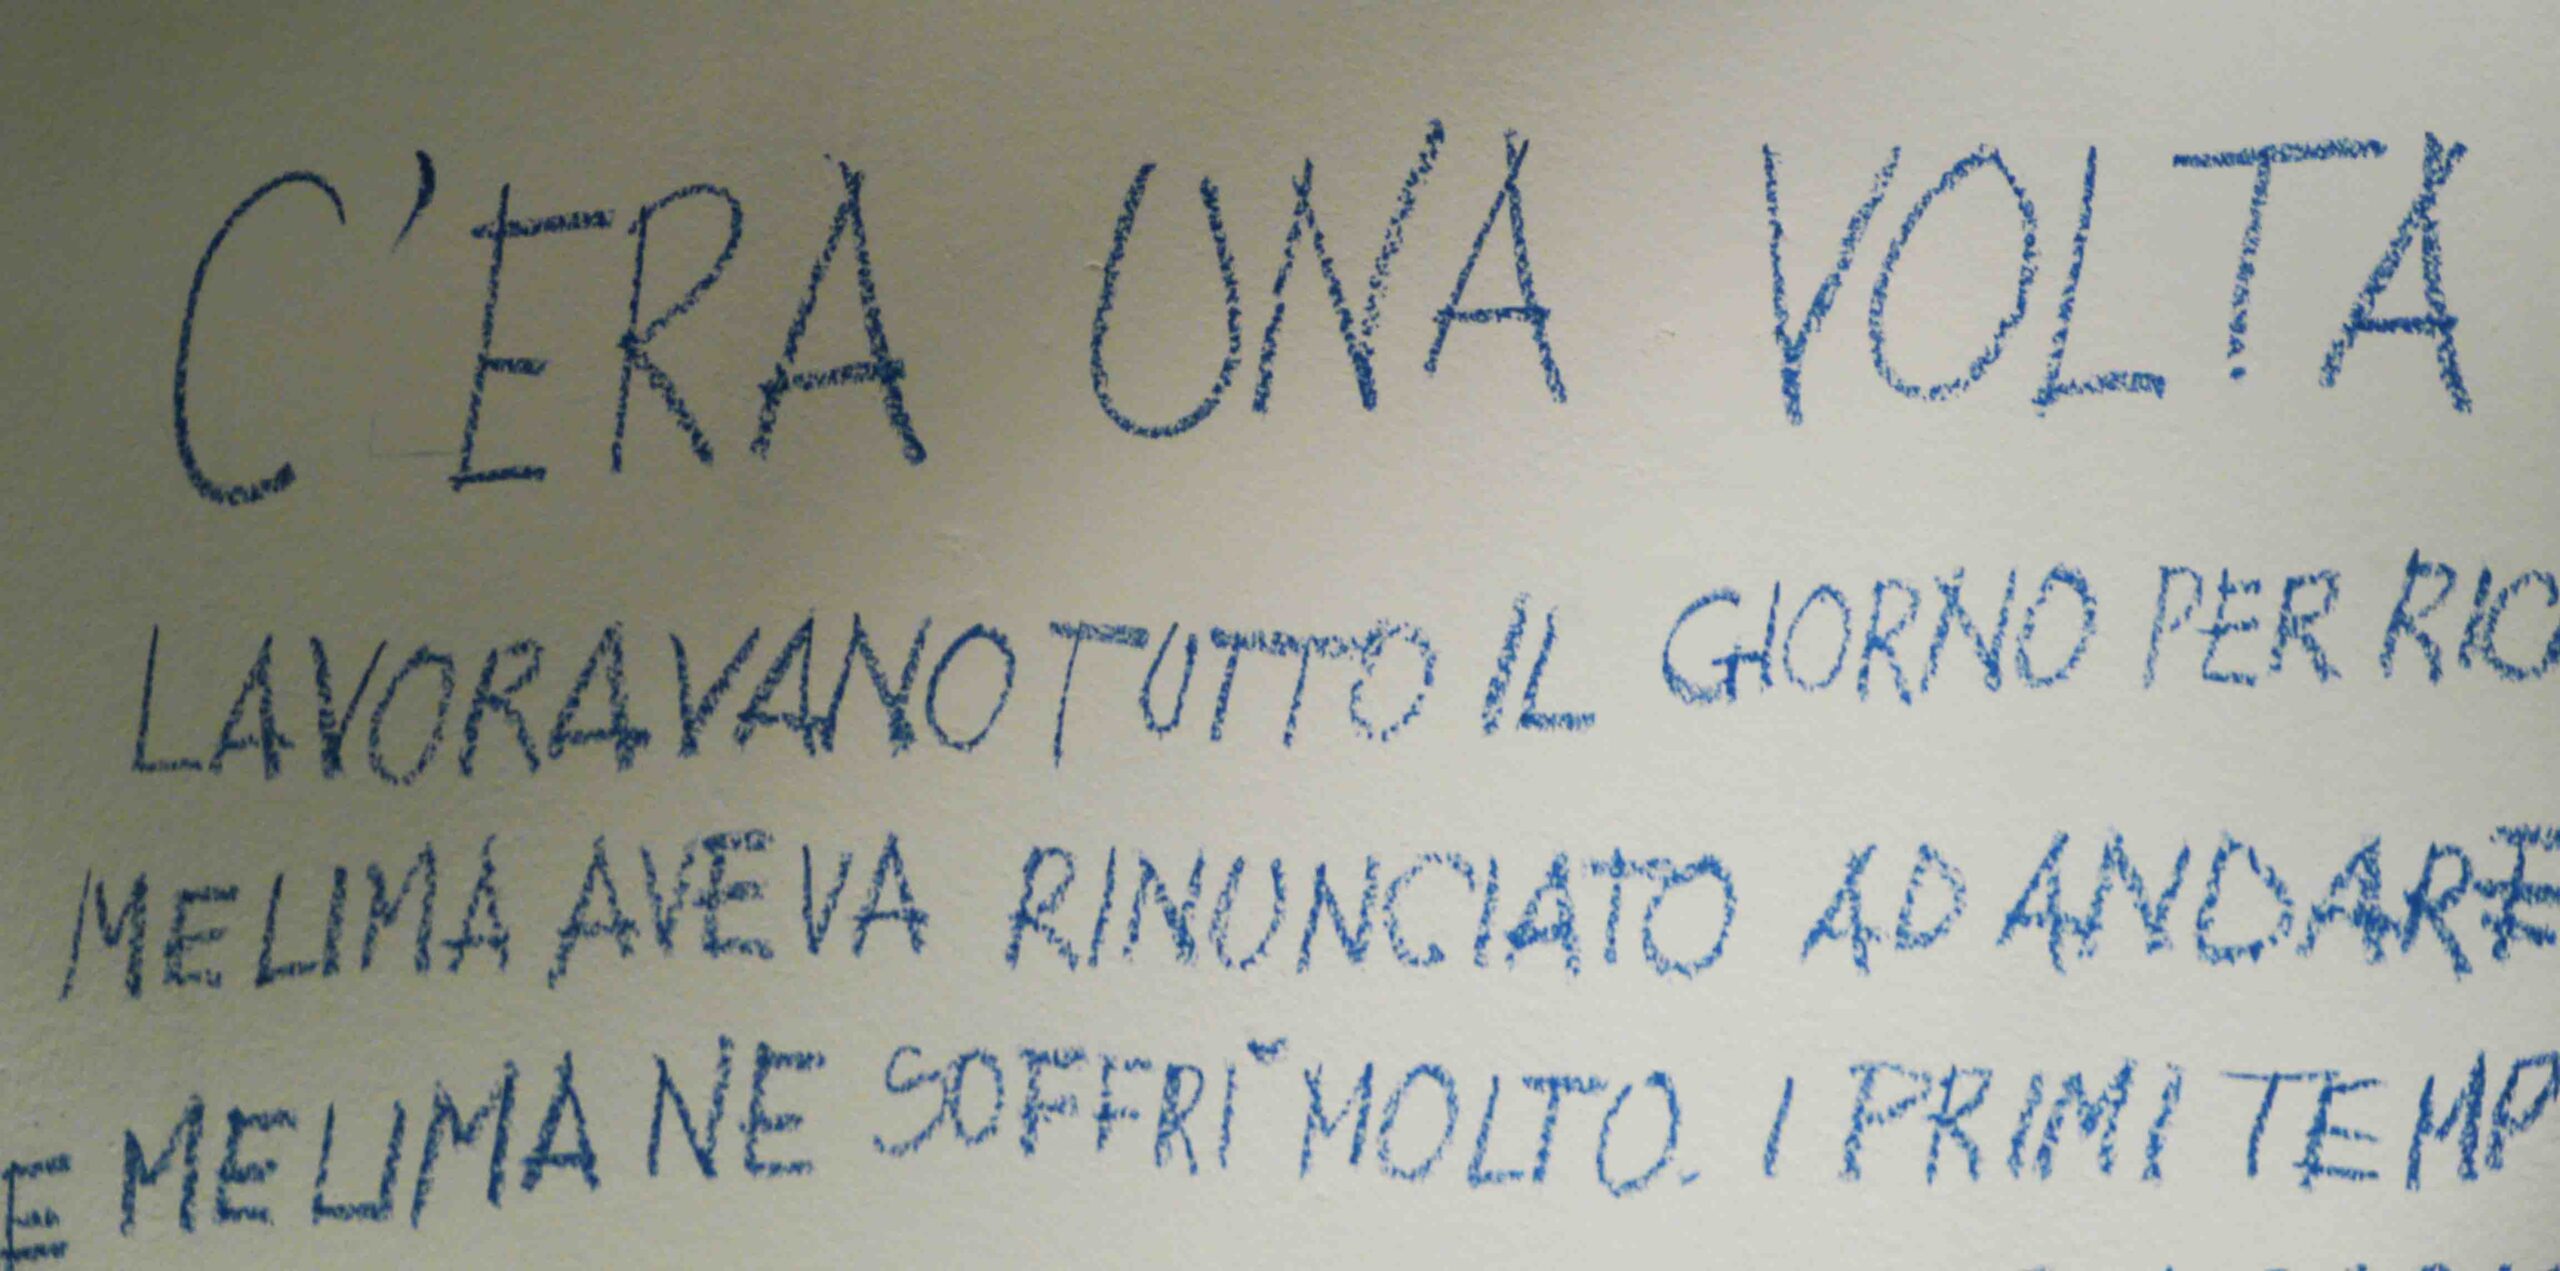 C'ERA UNA VOLTA
LAVORAVANO TUTTO IL GIORNO PER RIC
MELIMA AVEVA RINUNCIATO AD ANDARE
E MELIMA NE SOFFRÌ MOLTO. I PRIMI TEMP